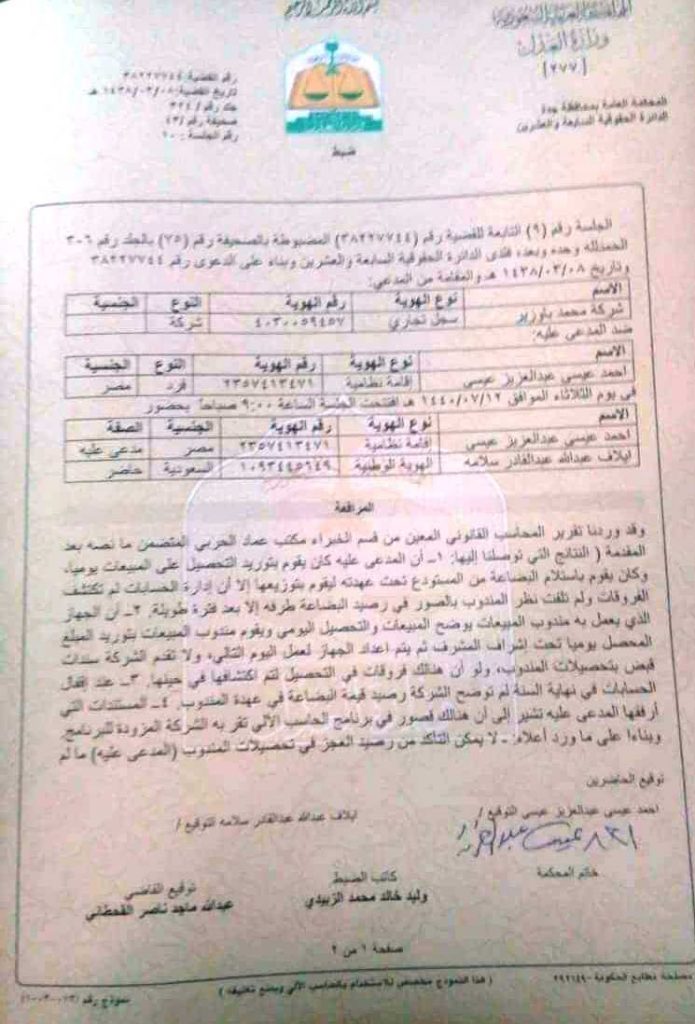 بسم الله الرحمن الرحيم
المملكة العربية السعودية
وزارة العدل
[٢٧٧]
المحكمة العامة بمحافظة جدة
الدائرة الحقوقية السابعة والعشرين
رقم القضية: ٣٨٢٢٧٧٤٤
تاريخ القضية: ١٤٣٨/٠٣/٠٨ هـ
جلد رقم / ٣٢٤
صحيفة رقم / ٤٣
رقم الجلسة : ١٠
ضبط
الجلسة رقم (٩) التابعة للقضية رقم (٣٨٢٢٧٧٤٤) المضبوطة بالصحيفة رقم (٧٥) بالجلد رقم ٣٠٦
الحمدلله وحده وبعد، فلدى الدائرة الحقوقية السابعة والعشرين وبناء على الدعوى رقم ٣٨٢٢٧٧٤٤
وتاريخ ١٤٣٨/٠٣/٠٨ هـ والمقامة من المدعي:
الاسم نوع الهوية رقم الهوية النوع الجنسية
شركة محمد باوزير سجل تجاري ٤٠٣٠٠٥٩٤٥٧ شركة
ضد المدعى عليه:
الاسم نوع الهوية رقم الهوية النوع الجنسية
احمد عيسى عبدالعزيز عيسى إقامة نظامية ٢٣٥٧٤١٣٤٧١ فرد مصر
في يوم الثلاثاء الموافق ١٤٤٠/٠٧/١٢ هـ افتتحت الجلسة الساعة ٩:٠٠ صباحاً بحضور
الاسم نوع الهوية رقم الهوية الجنسية الصفة
احمد عيسى عبدالعزيز عيسى إقامة نظامية ٢٣٥٧٤١٣٤٧١ مصر مدعى عليه
ايلاف عبدالله عبدالقادر سلامه الهوية الوطنية ١٠٩٣٤٤٥٦٤٩ السعودية حاضر
المرافعة
وقد وردنا تقرير المحاسب القانوني المعين من قسم الخبراء مكتب عماد الحربي المتضمن ما نصه بعد
المقدمة ( النتائج التي توصلنا إليها: ١ـ أن المدعى عليه كان يقوم بتوريد التحصيل على المبيعات يوميا،
وكان يقوم باستلام البضاعة من المستودع تحت عهدته ليقوم بتوزيعها إلا أن إدارة الحسابات لم تكتشف
الفروقات ولم تلفت نظر المندوب بالصور في رصيد البضاعة طرفه إلا بعد فترة طويلة. ٢ـ أن الجهاز
الذي يعمل به مندوب المبيعات يوضح المبيعات والتحصيل اليومي ويقوم مندوب المبيعات بتوريد المبلغ
المحصل يوميا تحت إشراف المشرف ثم يتم اعداد الجهاز لعمل اليوم التالي، ولا تقدم الشركة سندات
قبض بتحصيلات المندوب، ولو أن هنالك فروقات في التحصيل لتم اكتشافها في حينها. ٣ـ عند إقفال
الحسابات في نهاية السنة لم توضح الشركة رصيد قيمة البضاعة في عهدة المندوب. ٤ـ المستندات التي
أرفقها المدعى عليه تشير إلى أن هنالك قصور في برنامج الحاسب الآلي تقر به الشركة المزودة للبرنامج.
وبناءا على ما ورد أعلاه: ـ لا يمكن التأكد من رصيد العجز في تحصيلات المندوب (المدعى عليه) ما لم
توقيع الحاضرين
احمد عيسى عبدالعزيز عيسى التوقيع / ايلاف عبدالله عبدالقادر سلامه التوقيع /
خاتم المحكمة كاتب الضبط توقيع القاضي
وليد خالد محمد الزبيدي عبدالله ماجد ناصر القحطاني
صفحة ١ من ٢
مصلحة مطابع الحكومة - ٢٩٢١٤٩ ( هذا النموذج مخصص للاستخدام بالحاسب الآلي ويمنع تغليفه ) نموذج رقم (١٠٠٣-٠٢٣)